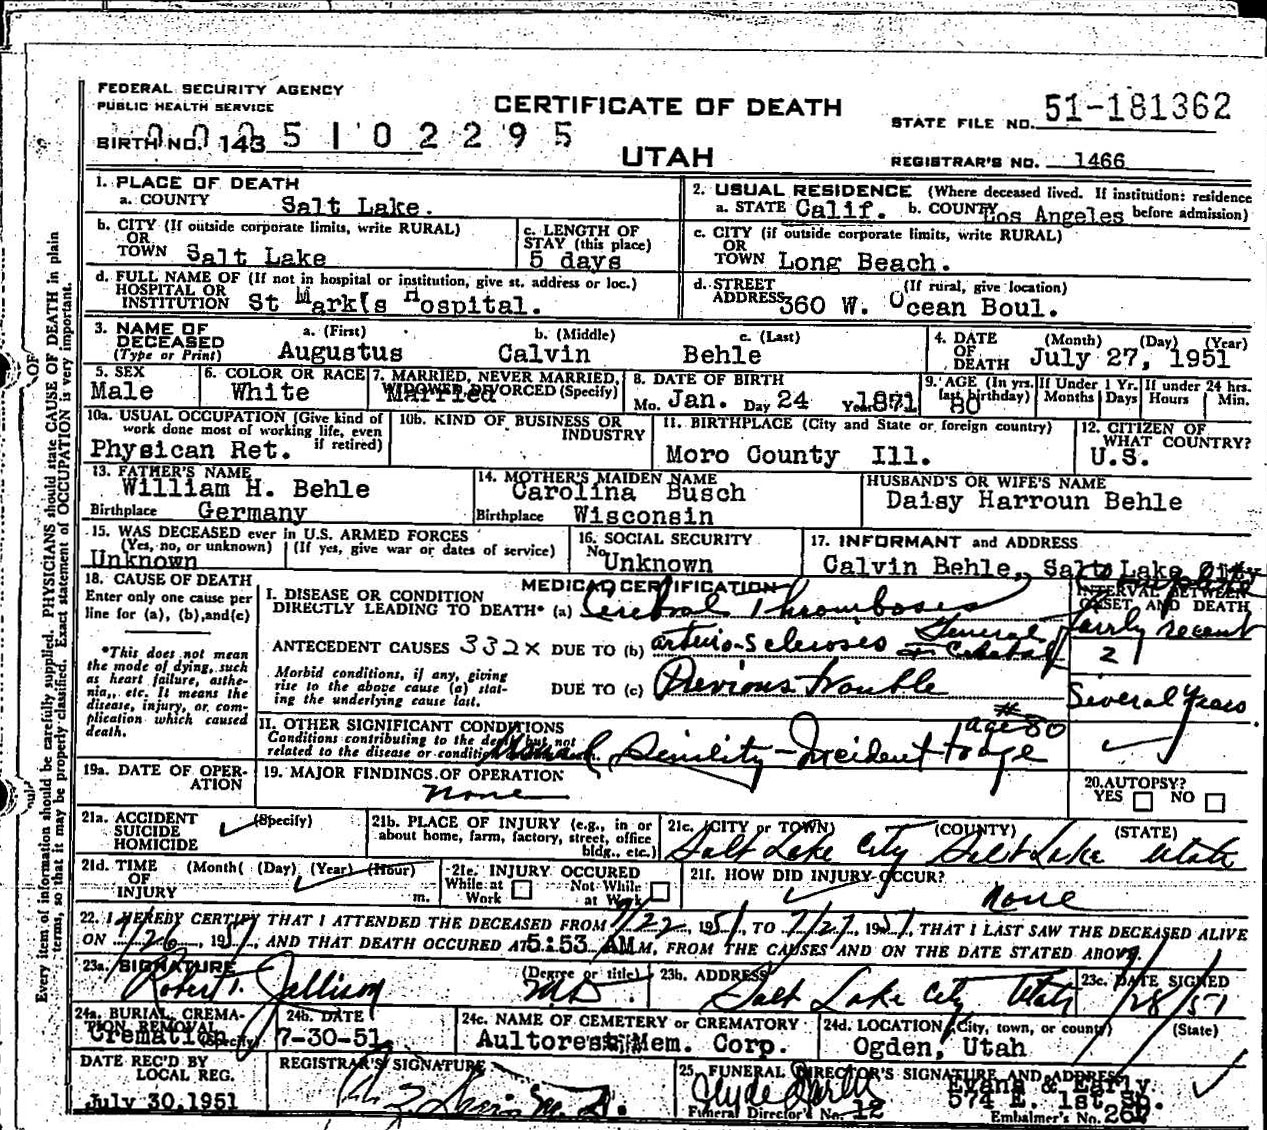 FEDERAL SECURITY AGENCY
PUBLIC HEALTH SERVICE
CERTIFICATE OF DEATH
STATE FILE NO. 51-181362
BIRTH NO. 143 5102295
UTAH
REGISTRAR'S NO. 1466
1. PLACE OF DEATH
a. COUNTY Salt Lake.
2. USUAL RESIDENCE (Where deceased lived. If institution: residence before admission)
a. STATE Calif. b. COUNTY Los Angeles
b. CITY (If outside corporate limits, write RURAL)
OR
TOWN Salt Lake
c. LENGTH OF
STAY (this place)
5 days
c. CITY (if outside corporate limits, write RURAL)
OR
TOWN Long Beach.
d. FULL NAME OF (If not in hospital or institution, give st. address or loc.)
HOSPITAL OR
INSTITUTION St Mark's Hospital.
d. STREET (If rural, give location)
ADDRESS 360 W. Ocean Boul.
3. NAME OF
DECEASED
(Type or Print)
a. (First) b. (Middle) c. (Last)
Augustus Calvin Behle
4. DATE (Month) (Day) (Year)
OF
DEATH July 27, 1951
5. SEX
Male
6. COLOR OR RACE
White
7. MARRIED, NEVER MARRIED,
WIDOWED, DIVORCED (Specify)
Married
8. DATE OF BIRTH
Mo. Jan. Day 24 Year 1871
9. AGE (In yrs. last birthday)
80
If Under 1 Yr.
Months Days
If under 24 hrs.
Hours Min.
10a. USUAL OCCUPATION (Give kind of
work done most of working life, even
if retired)
Physican Ret.
10b. KIND OF BUSINESS OR
INDUSTRY
11. BIRTHPLACE (City and State or foreign country)
Moro County Ill.
12. CITIZEN OF
WHAT COUNTRY?
U.S.
13. FATHER'S NAME
William H. Behle
Birthplace Germany
14. MOTHER'S MAIDEN NAME
Carolina Busch
Birthplace Wisconsin
HUSBAND'S OR WIFE'S NAME
Daisy Harroun Behle
15. WAS DECEASED ever in U.S. ARMED FORCES
(Yes, no, or unknown) (If yes, give war or dates of service)
Unknown
16. SOCIAL SECURITY
No. Unknown
17. INFORMANT and ADDRESS
Calvin Behle, Salt Lake City
18. CAUSE OF DEATH
Enter only one cause per
line for (a), (b), and (c)
*This does not mean
the mode of dying, such
as heart failure, asthe-
nia, etc. It means the
disease, injury, or com-
plication which caused
death.
MEDICAL CERTIFICATION
INTERVAL BETWEEN
ONSET AND DEATH
I. DISEASE OR CONDITION
DIRECTLY LEADING TO DEATH* (a) Cerebral Thromboses
fairly recent
ANTECEDENT CAUSES 332X DUE TO (b) arterio-scleroses General
21
Morbid conditions, if any, giving
rise to the above cause (a) stat-
ing the underlying cause last.
DUE TO (c) Previous trouble
Several Years
II. OTHER SIGNIFICANT CONDITIONS
Conditions contributing to the death but not
related to the disease or condition
Senility - Incident to age
age 80
19a. DATE OF OPER-
ATION
19. MAJOR FINDINGS OF OPERATION
none
20. AUTOPSY?
YES NO
21a. ACCIDENT (Specify)
SUICIDE
HOMICIDE
21b. PLACE OF INJURY (e.g., in or
about home, farm, factory, street, office
bldg., etc.)
21c. (CITY or TOWN) (COUNTY) (STATE)
Salt Lake City Salt Lake Utah
21d. TIME (Month) (Day) (Year) (Hour)
OF
INJURY m.
21e. INJURY OCCURED
While at Work Not While at Work
21f. HOW DID INJURY OCCUR?
none
22. I HEREBY CERTIFY THAT I ATTENDED THE DECEASED FROM 7/22, 1951, TO 7/27, 1951, THAT I LAST SAW THE DECEASED ALIVE
ON 7/26, 1951, AND THAT DEATH OCCURED AT 5:53 AM M., FROM THE CAUSES AND ON THE DATE STATED ABOVE.
23a. SIGNATURE (Degree or title)
Robert T. Jellison MD.
23b. ADDRESS
Salt Lake City Utah
23c. DATE SIGNED
7/28/51
24a. BURIAL, CREMA-
TION REMOVAL
(Specify)
Cremation
24b. DATE
7-30-51
24c. NAME OF CEMETERY or CREMATORY
Aultorest Mem. Corp.
24d. LOCATION (City, town, or county) (State)
Ogden, Utah
DATE REC'D BY
LOCAL REG.
July 30, 1951
REGISTRAR'S SIGNATURE
M.D.
25. FUNERAL DIRECTOR'S SIGNATURE AND ADDRESS
Evans & Early.
574 E. 1st So.
Funeral Director's No. 12
Embalmer's No. 267
Every item of information should be carefully supplied. PHYSICIANS should state CAUSE OF DEATH in plain
terms, so that it may be properly classified. Exact statement of OCCUPATION is very important.